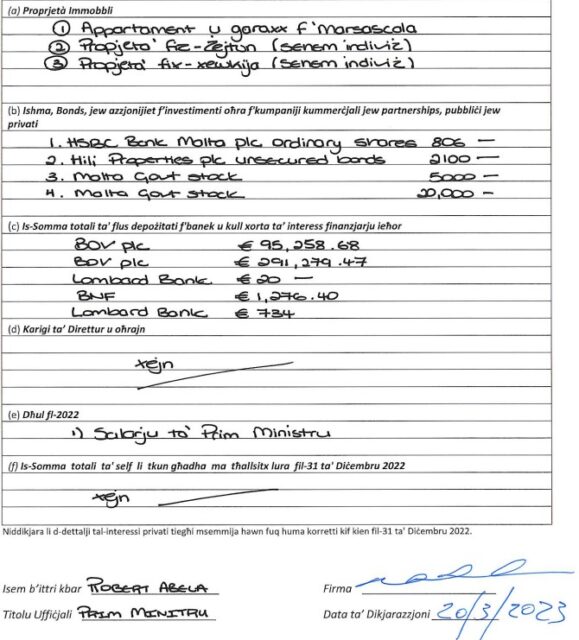 (a) Proprjetà Immobbli
① Appartament u garaxx f'Marsascala
② Propjeta' fiz-Zejtun (senem indiviż)
③ Propjeta' fix-xewkija (senem indiviż)
(b) Ishma, Bonds, jew azzjonijiet f'investimenti oħra f'kumpaniji kummerċjali jew partnerships, pubbliċi jew
privati
1. HSBC Bank Malta plc ordinary shares 806 —
2. Hili Properties plc unsecured bonds 2100 —
3. Malta Govt stock 5000 —
4. Malta Govt stock 20,000 —
(c) Is-Somma totali ta' flus depożitati f'banek u kull xorta ta' interess finanzjarju ieħor
BOV plc € 95,258.68
BOV plc € 291,279.47
Lombard Bank € 20 —
BNF € 1,276.40
Lombard Bank € 734
(d) Karigi ta' Direttur u oħrajn
xejn
(e) Dħul fl-2022
1) Salarju ta' Prim Ministru
(f) Is-Somma totali ta' self li tkun għadha ma tħallsitx lura fil-31 ta' Diċembru 2022
xejn
Niddikjara li d-dettalji tal-interessi privati tiegħi msemmija hawn fuq huma korretti kif kien fil-31 ta' Diċembru 2022.
Isem b'ittri kbar ROBERT ABELA Firma
Titolu Uffiċjali PRIM MINITRU Data ta' Dikjarazzjoni 20/3/2023